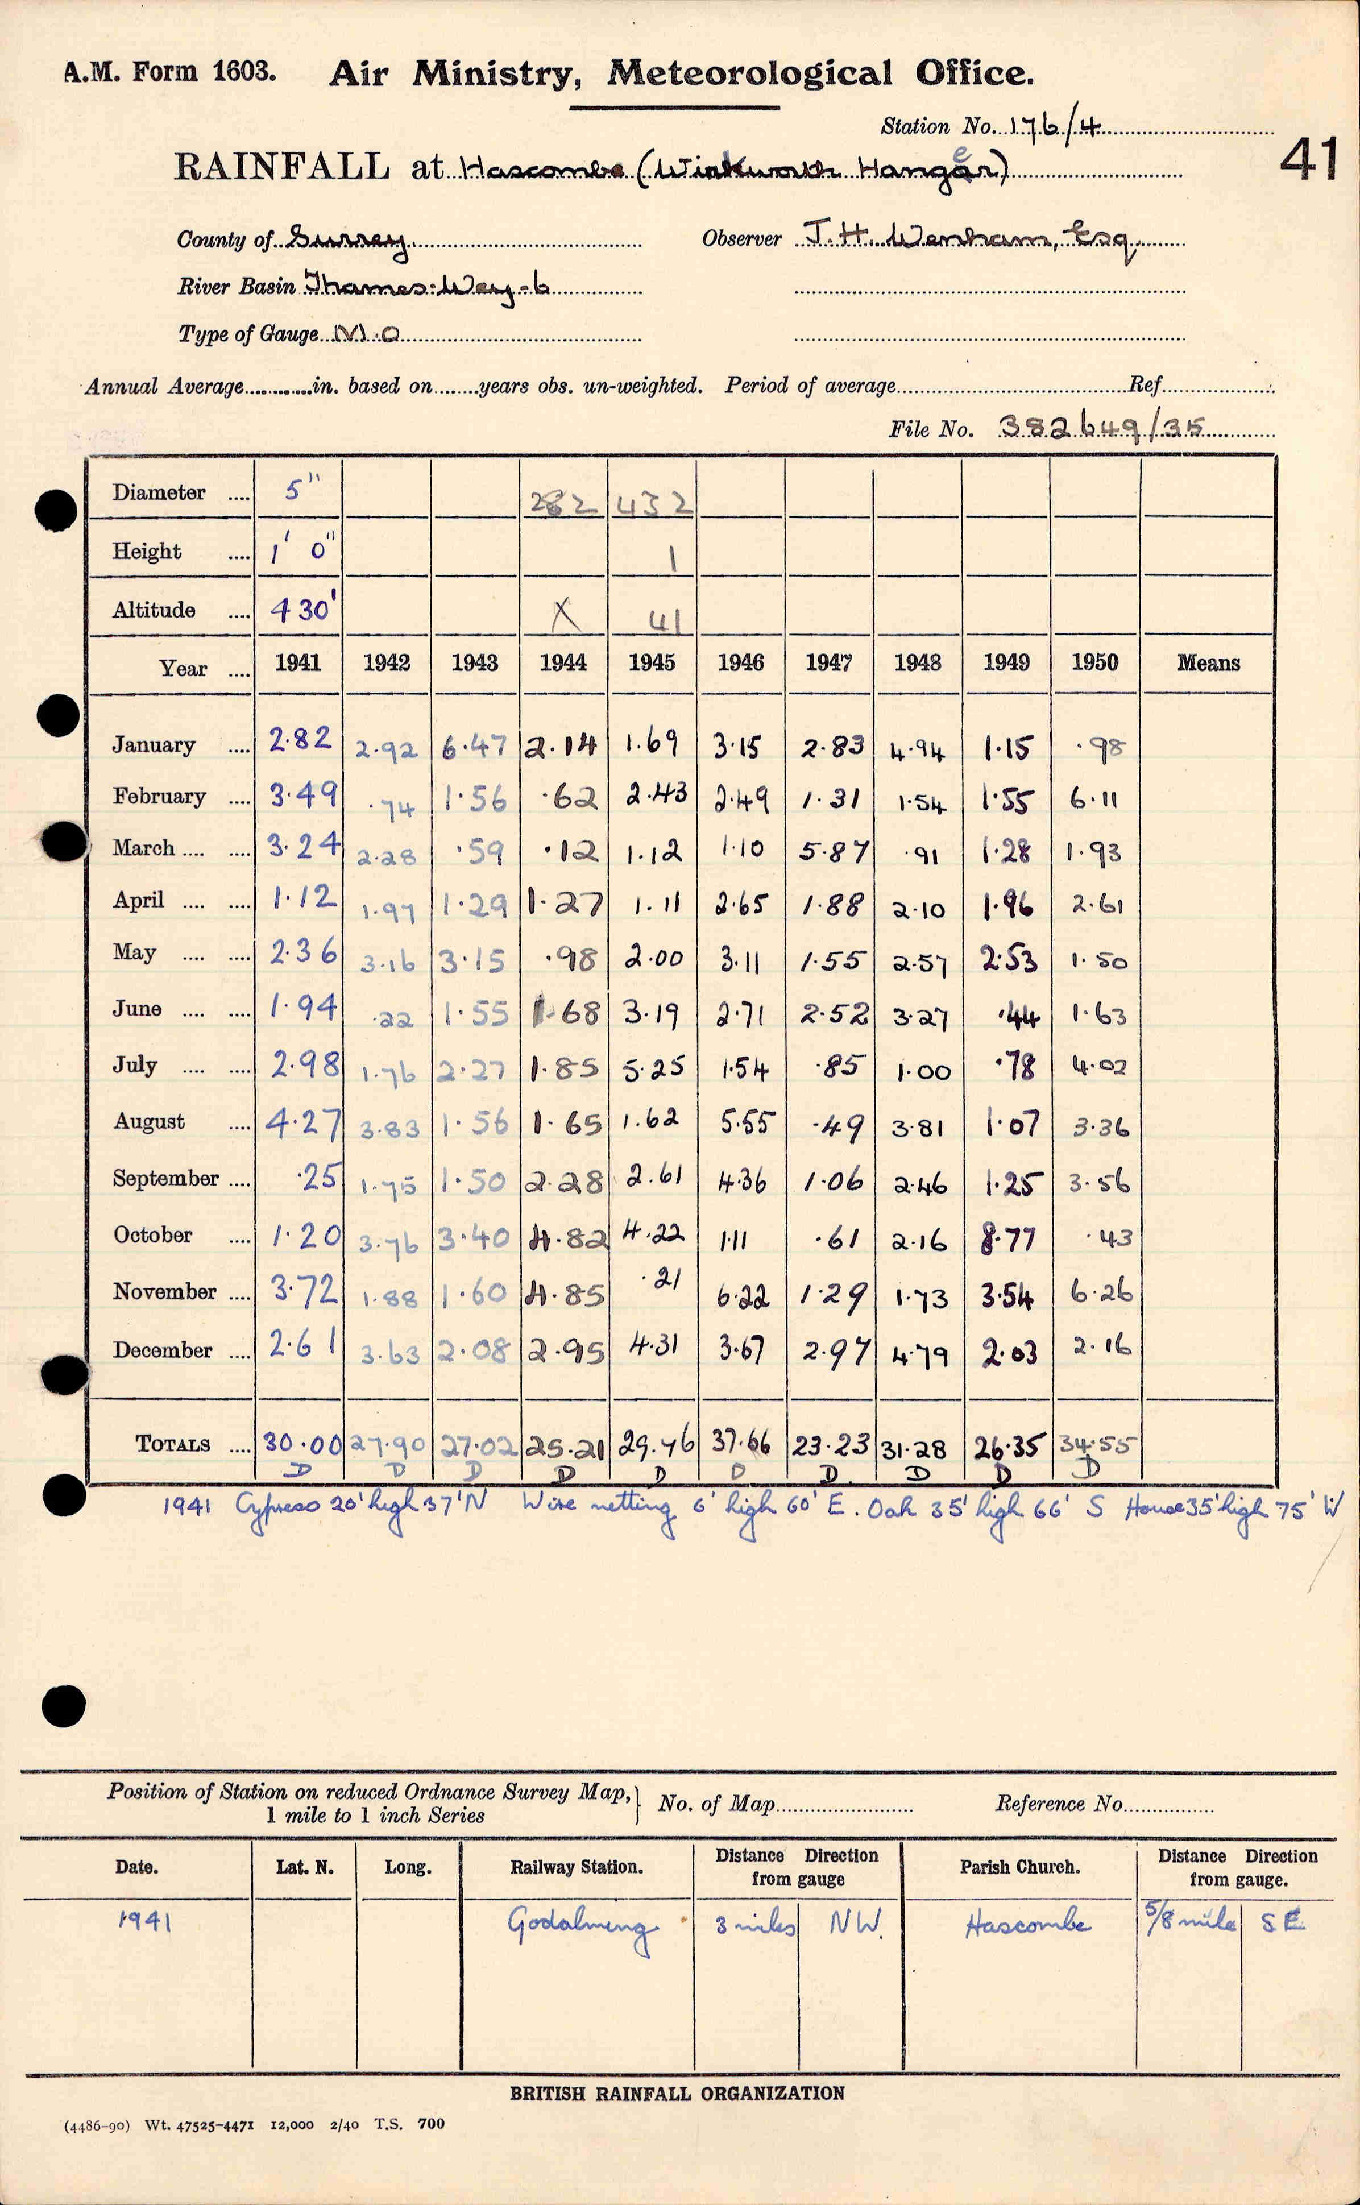 A.M. Form 1603. Air Ministry, Meteorological Office.
Station No. 176/4
41
RAINFALL at Hascombe (Winkworth Hanger)
County of Surrey Observer J.H. Wenham, Esq.
River Basin Thames-Wey-6
Type of Gauge M.O
Annual Average in. based on years obs. un-weighted. Period of average Ref.
File No. 382649/35
Diameter .... 5" 282 432
Height .... 1' 0" 1
Altitude .... 430' X 41
Year .... 1941 1942 1943 1944 1945 1946 1947 1948 1949 1950 Means
January .... 2.82 2.92 6.47 2.14 1.69 3.15 2.83 4.94 1.15 .98
February .... 3.49 .74 1.56 .62 2.43 2.49 1.31 1.54 1.55 6.11
March .... .... 3.24 2.28 .59 .12 1.12 1.10 5.87 .91 1.28 1.93
April .... .... 1.12 1.97 1.29 1.27 1.11 2.65 1.88 2.10 1.96 2.61
May .... .... 2.36 3.16 3.15 .98 2.00 3.11 1.55 2.57 2.53 1.50
June .... .... 1.94 .22 1.55 1.68 3.19 2.71 2.52 3.27 .44 1.63
July .... .... 2.98 1.76 2.27 1.85 5.25 1.54 .85 1.00 .78 4.02
August .... 4.27 3.83 1.56 1.65 1.62 5.55 .49 3.81 1.07 3.36
September .... .25 1.75 1.50 2.28 2.61 4.36 1.06 2.46 1.25 3.56
October .... 1.20 3.76 3.40 4.82 4.22 1.11 .61 2.16 8.77 .43
November .... 3.72 1.88 1.60 4.85 .21 6.22 1.29 1.73 3.54 6.26
December .... 2.61 3.63 2.08 2.95 4.31 3.67 2.97 4.79 2.03 2.16
TOTALS .... 30.00 27.90 27.02 25.21 29.76 37.66 23.23 31.28 26.35 34.55
D D D D D D D D D D
1941 Cypress 20' high 37' N Wire netting 6' high 60' E. Oak 35' high 66' S House 35' high 75' W
Position of Station on reduced Ordnance Survey Map, } No. of Map Reference No.
1 mile to 1 inch Series
Date. Lat. N. Long. Railway Station. Distance Direction from gauge Parish Church. Distance Direction from gauge.
1941 Godalming 3 miles NW. Hascombe 5/8 mile SE
BRITISH RAINFALL ORGANIZATION
(4486-90) Wt. 47525-4471 12,000 2/40 T.S. 700